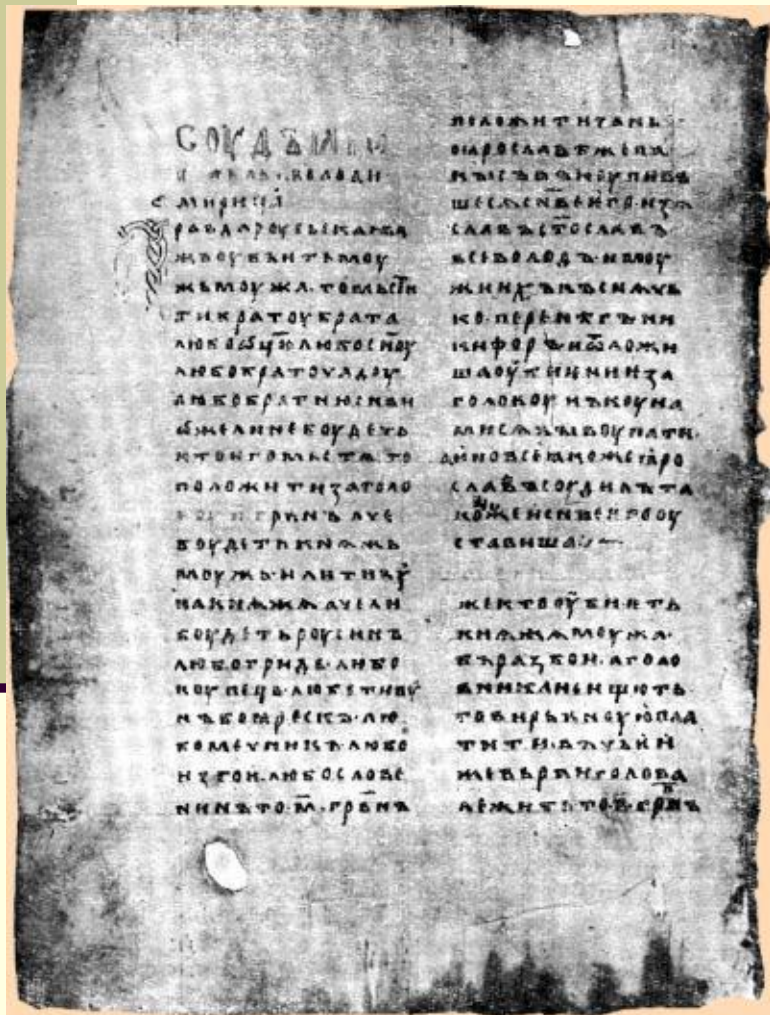 СОУДЪ ꙖРО
СЛАВЛЬ ВОЛОДИ
МИРИЦѦ
РАВДА РОУСЬСКАꙖ А
ЖЬ ОУБЬѤТЬ МОУ
ЖЬ МОУЖА ТО МЬСТИ
ТИ БРАТОУ БРАТА
ЛЮБО ѾЦЮ ЛЮБО СН҃ОУ
ЛЮБО БРАТОУЧАДОУ
ЛЮБО БРАТНЮ СН҃ВИ
ѾЖЕ ЛИ НЕ БОУДЕТЬ
КТО ѤГО МЬСТѦ ТО
ПОЛОЖИТИ ЗА ГОЛО
ВОУ П ГРВ҃НЪ АЧЕ
БОУДЕТЬ КНѦЖЬ
МОУЖЬ ИЛИ ТИВУ
НА КНѦЖѦ АЧЕ ЛИ
БОУДЕТЬ РОУСИНЪ
ЛЮБО ГРИДЬ ЛЮБО
КОУПЕЦЬ ЛЮБО ТИВУ
НЪ БОꙖРЕСКЪ ЛЮ
БО МЕЧНИКЪ ЛЮБО
ИЗГОИ ЛЮБО СЛОВЕ
НИНЪ ТО М҃ ГРВ҃НЪ
ПОЛОЖИТИ ЗА НЬ
ПО ꙖРОСЛАВѢ ЖЕ ПА
КЫ СЪВЪКОУПИВЪ
ШЕСѦ СН҃ВЕ ѤГО ИЗѦ
СЛАВЪ СТ҃ОСЛАВЪ
ВСЕВОЛОДЪ И МОУ
ЖИ ИХЪ КЪСНѦЧЬ
КО ПЕРЕНѢГЪ НИ
КИФОРЪ И ѾЛОЖИ
ША ОУБИѤНИѤ ЗА
ГОЛОВОУ НЪ КОУНА
МИ СѦ ВЫКОУПАТИ
А ИНО ВСЕ ꙖКОЖЕ ꙖРО
СЛАВЪ СОУДИЛЪ ТА
КОЖЕ И СН҃ВЕ ѤГО ОУ
СТАВИША
ЖЕ КТО ОУБИѤТЬ
КНѦЖѦ МОУЖА
ВЪ РАЗБОИ А ГОЛО
ВНИКА НЕ ИЩЮТЬ
ТО ВИРЬВНОУЮ ПЛА
ТИТИ ВЪ ЧЬѤИ
ЖЕ ВЬРВИ ГОЛОВА
ЛЕЖИТЬ ТО П ГРВ҃НЪ